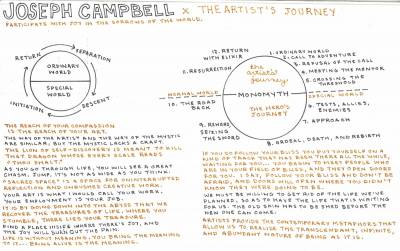 JOSEPH CAMPBELL x THE ARTIST'S JOURNEY
PARTICIPATE WITH JOY IN THE SORROWS OF THE WORLD.
RETURN
SEPARATION
ORDINARY WORLD
SPECIAL WORLD
INITIATION
DESCENT
12. RETURN WITH ELIXIR
11. RESURRECTION
1. ORDINARY WORLD
2. CALL TO ADVENTURE
3. REFUSAL OF THE CALL
4. MEETING THE MENTOR
5. CROSSING THE THRESHOLD
NORMAL WORLD
SPECIAL WORLD
10. THE ROAD BACK
6. TESTS, ALLIES, ENEMIES
9. REWARD, SEIZING THE SWORD
7. APPROACH
8. ORDEAL, DEATH, AND REBIRTH
the artist's journey
MONOMYTH
THE HERO'S JOURNEY
THE REACH OF YOUR COMPASSION
IS THE REACH OF YOUR ART.
THE WAY OF THE ARTIST AND THE WAY OF THE MYSTIC
ARE SIMILAR, BUT THE MYSTIC LACKS A CRAFT.
THE LION OF SELF-DISCOVERY IS MEANT TO KILL
THAT DRAGON WHOSE EVERY SCALE READS
"THOU SHALT."
AS YOU GO THROUGH LIFE, YOU WILL SEE A GREAT
CHASM. JUMP. IT'S NOT AS WIDE AS YOU THINK.
"SACRED SPACE" IS A SPACE FOR UNINTERRUPTED
REFLECTION AND UNRUSHED CREATIVE WORK.
YOUR ART IS WHAT I WOULD CALL YOUR WORK.
YOUR EMPLOYMENT IS YOUR JOB.
IT IS BY GOING DOWN INTO THE ABYSS THAT WE
RECOVER THE TREASURES OF LIFE. WHERE YOU
STUMBLE, THERE LIES YOUR TREASURE.
FIND A PLACE INSIDE WHERE THERE'S JOY, AND
THE JOY WILL BURN OUT THE PAIN.
LIFE IS WITHOUT MEANING. YOU BRING THE MEANING
TO IT... BEING ALIVE IS THE MEANING.
IF YOU DO FOLLOW YOUR BLISS YOU PUT YOURSELF ON A
KIND OF TRACK THAT HAS BEEN THERE ALL THE WHILE,
WAITING FOR YOU... YOU BEGIN TO MEET PEOPLE WHO
ARE IN YOUR FIELD OF BLISS, AND THEY OPEN DOORS
FOR YOU. I SAY, FOLLOW YOUR BLISS AND DON'T BE
AFRAID, AND DOORS WILL OPEN WHERE YOU DIDN'T
KNOW THEY WERE GOING TO BE.
WE MUST BE WILLING TO GET RID OF THE LIFE WE'VE
PLANNED, SO AS TO HAVE THE LIFE THAT IS WAITING
FOR US. THE OLD SKIN HAS TO BE SHED BEFORE THE
NEW ONE CAN COME.
ARTISTS PROVIDE THE CONTEMPORARY METAPHORS THAT
ALLOW US TO REALIZE THE TRANSCENDENT, INFINITE,
AND ABUNDANT NATURE OF BEING AS IT IS.